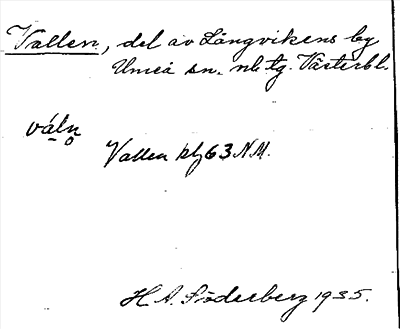 Vallen, del av Långvikens by
Umeå sn. nb. tg. Västerbl.
vátn̥
Vallen blj 63 N.M.
H. A. Söderberg 1935.